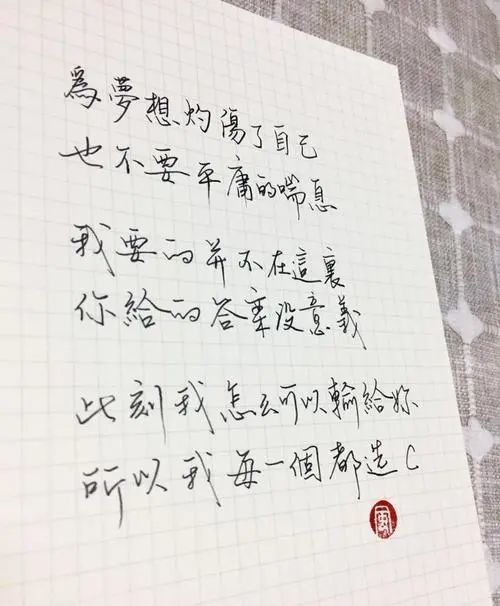 為夢想灼傷了自己
也不要平庸的喘息
我要的并不在這裏
你給的答案没意義
此刻我怎么可以輸給妳
所以我每一個都选C
風